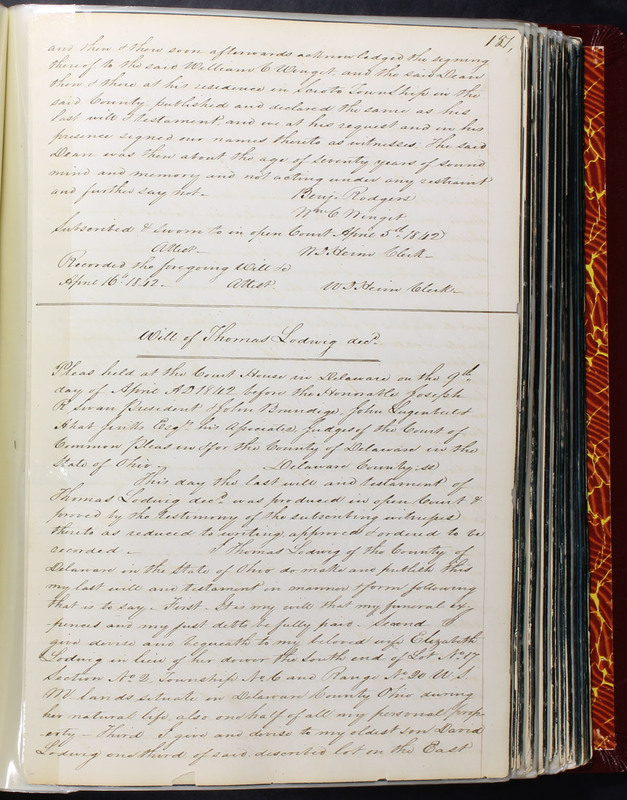 187,
and then & there soon afterwards acknowledged the signing
thereof to the said William C Winget, and the said Dean
then & there at his residence in Scioto Township in the
said County, published and declared the same as his
last will & testament, and we at his request and in his
presence signed our names thereto as witnesses. The said
Dean was then about the age of seventy years of sound
mind and memory and not acting under any restraint
and further say not— Benj. Rodgers
Wm C Winget
Subscribed & sworn to in open Court April 5th 1842
Attest— Clerk—
Recorded the foregoing Will &c
April 16th 1842— Attest. Clerk—
Will of Thomas Lodwig decd.
Pleas held at the Court House in Delaware on the 9th
day of April AD 1842 before the Honorable Joseph
R Swan President & John Brundige, John Lugenbeel &
Ahab Jinks Esqrs. his Associates, judges of the Court of
Common Pleas in & for the County of Delaware in the
State of Ohio— Delaware County ss
This day the last will and testament of
Thomas Lodwig decd was produced in open Court &
proved by the testimony of the subscribing witnesses
thereto as reduced to writing, approved & ordered to be
recorded— I Thomas Lodwig of the County of
Delaware in the State of Ohio do make and publish this
my last will and testament in manner & form following
that is to say— First. It is my will that my funeral ex
penses and my just debts be fully paid— Second I
give devise and bequeath to my beloved wife Elizabeth
Lodwig in lieu of her dower the South end of Lot No. 17
Section No 2, Township No 6 and Range No 20 U.S.
M. lands situate in Delaware County Ohio during
her natural life, also one half of all my personal prop-
-erty— Third I give and devise to my oldest son David
Lodwig one third of said described lot on the East